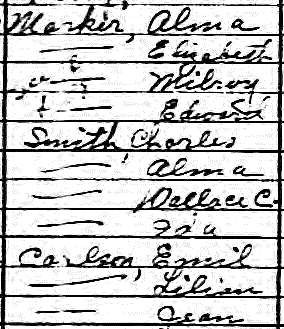 Marker, Alma
— Elizabeth
— Milroy
— Edward
Smith, Charles
— Alma
— Wallace C.
— Ida
Carlson, Emil
— Lilian
— Jean